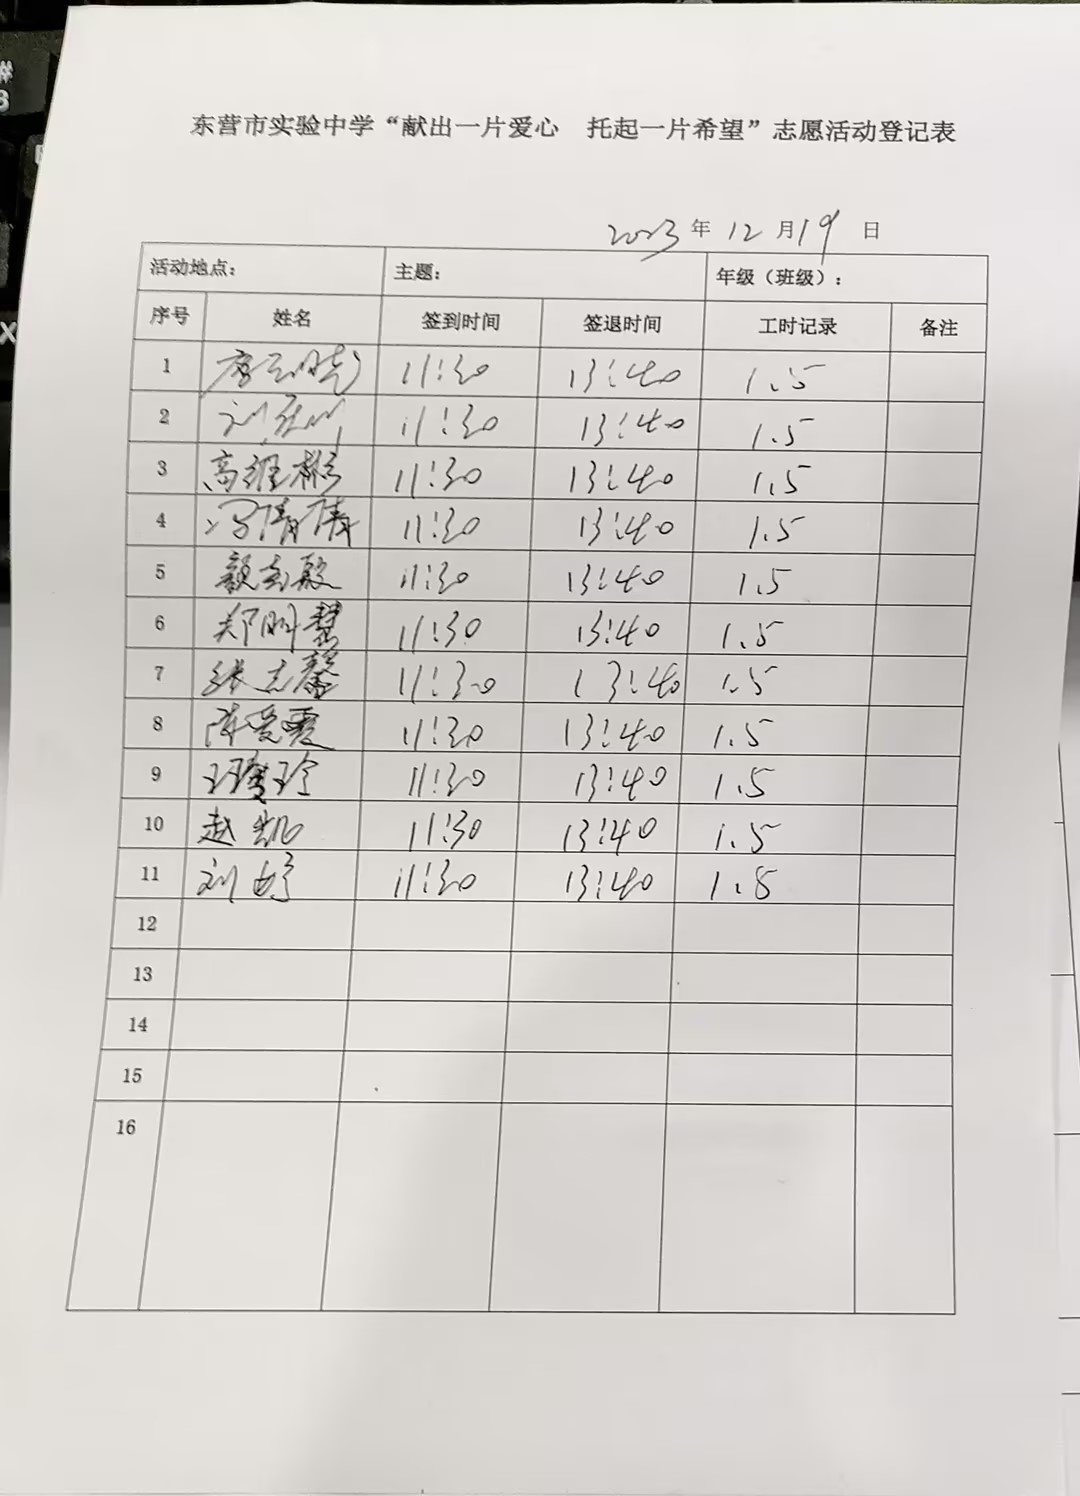 东营市实验中学“献出一片爱心 托起一片希望”志愿活动登记表
2023年12月19日
活动地点： 主题： 年级（班级）：
序号 姓名 签到时间 签退时间 工时记录 备注
1 11:30 13:40 1.5
2 刘 11:30 13:40 1.5
3 高维彬 11:30 13:40 1.5
4 冯倩倩 11:30 13:40 1.5
5 颜 11:30 13:40 1.5
6 郑明慧 11:30 13:40 1.5
7 张志馨 11:30 13:40 1.5
8 陈爱霞 11:30 13:40 1.5
9 王 玲 11:30 13:40 1.5
10 赵凯 11:30 13:40 1.5
11 刘婷 11:30 13:40 1.5
12
13
14
15
16